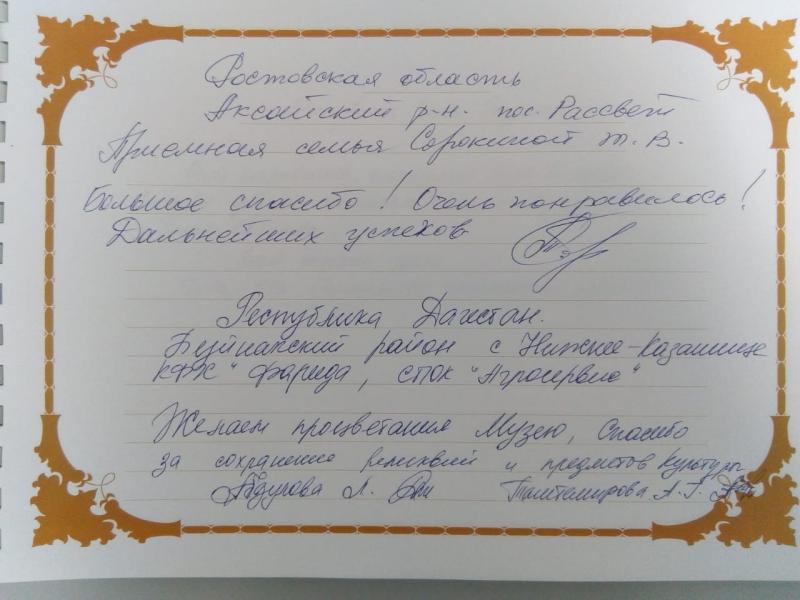 Ростовская область
Аксайский р-н. пос. Рассвет
Приемная семья Сорокиной Т. В.
Большое спасибо! Очень понравилось!
Дальнейших успехов
Республика Дагестан.
Буйнакский район с Нижнее-Казанище
КФХ "Фарида, СПОК "Агросервис"
Желаем процветания Музею, Спасибо
за сохранение реликвий и предметов культуры
Абдулова Л. Таштамирова А. Г.